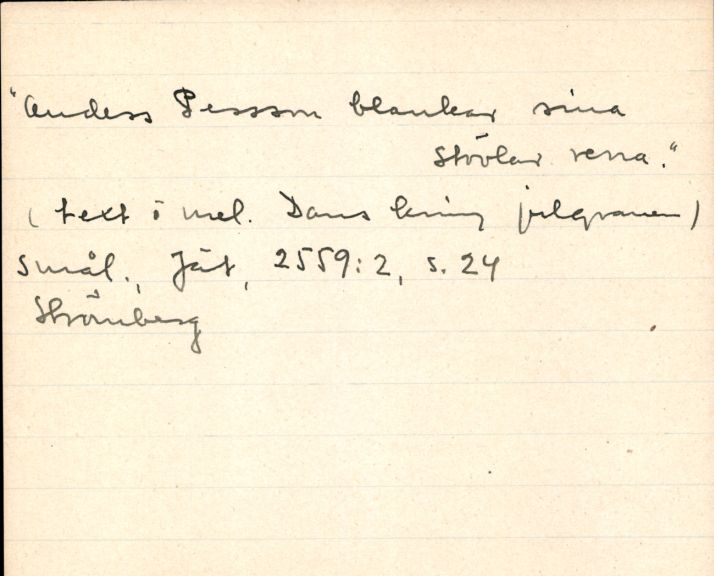 "Anders Persson blankar sina
stövlar rena."
( text o mel. Dans kring julgranen)
Smål., Jät, 2559:2, s. 24
Strömberg